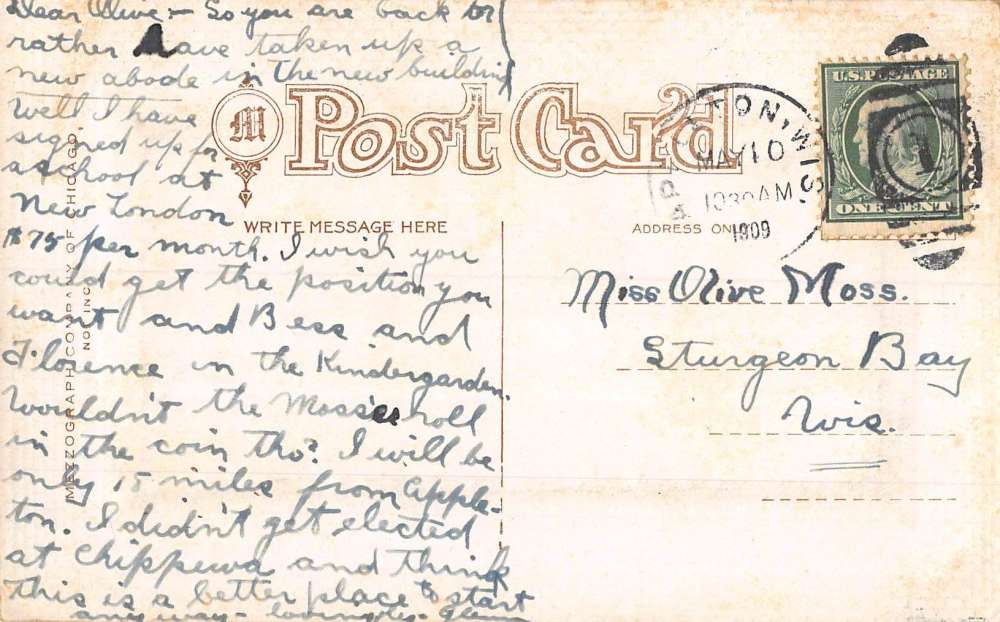 Dear Olive:- So you are back or
rather have taken up a
new abode in the new building
Well I have
signed up for
a school at
New London
$75 per month. I wish you
could get the position you
want and Bess and
Florence in the Kindergarden.
Wouldn't the Moss'es roll
in the coin tho? I will be
only 15 miles from Apple-
ton. I didn't get elected
at Chippewa and think
this is a better place to start
anyway - lovingly -
M
Post Card
WRITE MESSAGE HERE
ADDRESS ONLY
MEZZOGRAPH COMPANY OF CHICAGO.
NOT INC.
TON, WIS.
MAY 10
1030 AM
1909
U.S. POSTAGE
ONE CENT
1
Miss Olive Moss.
Sturgeon Bay
Wis.